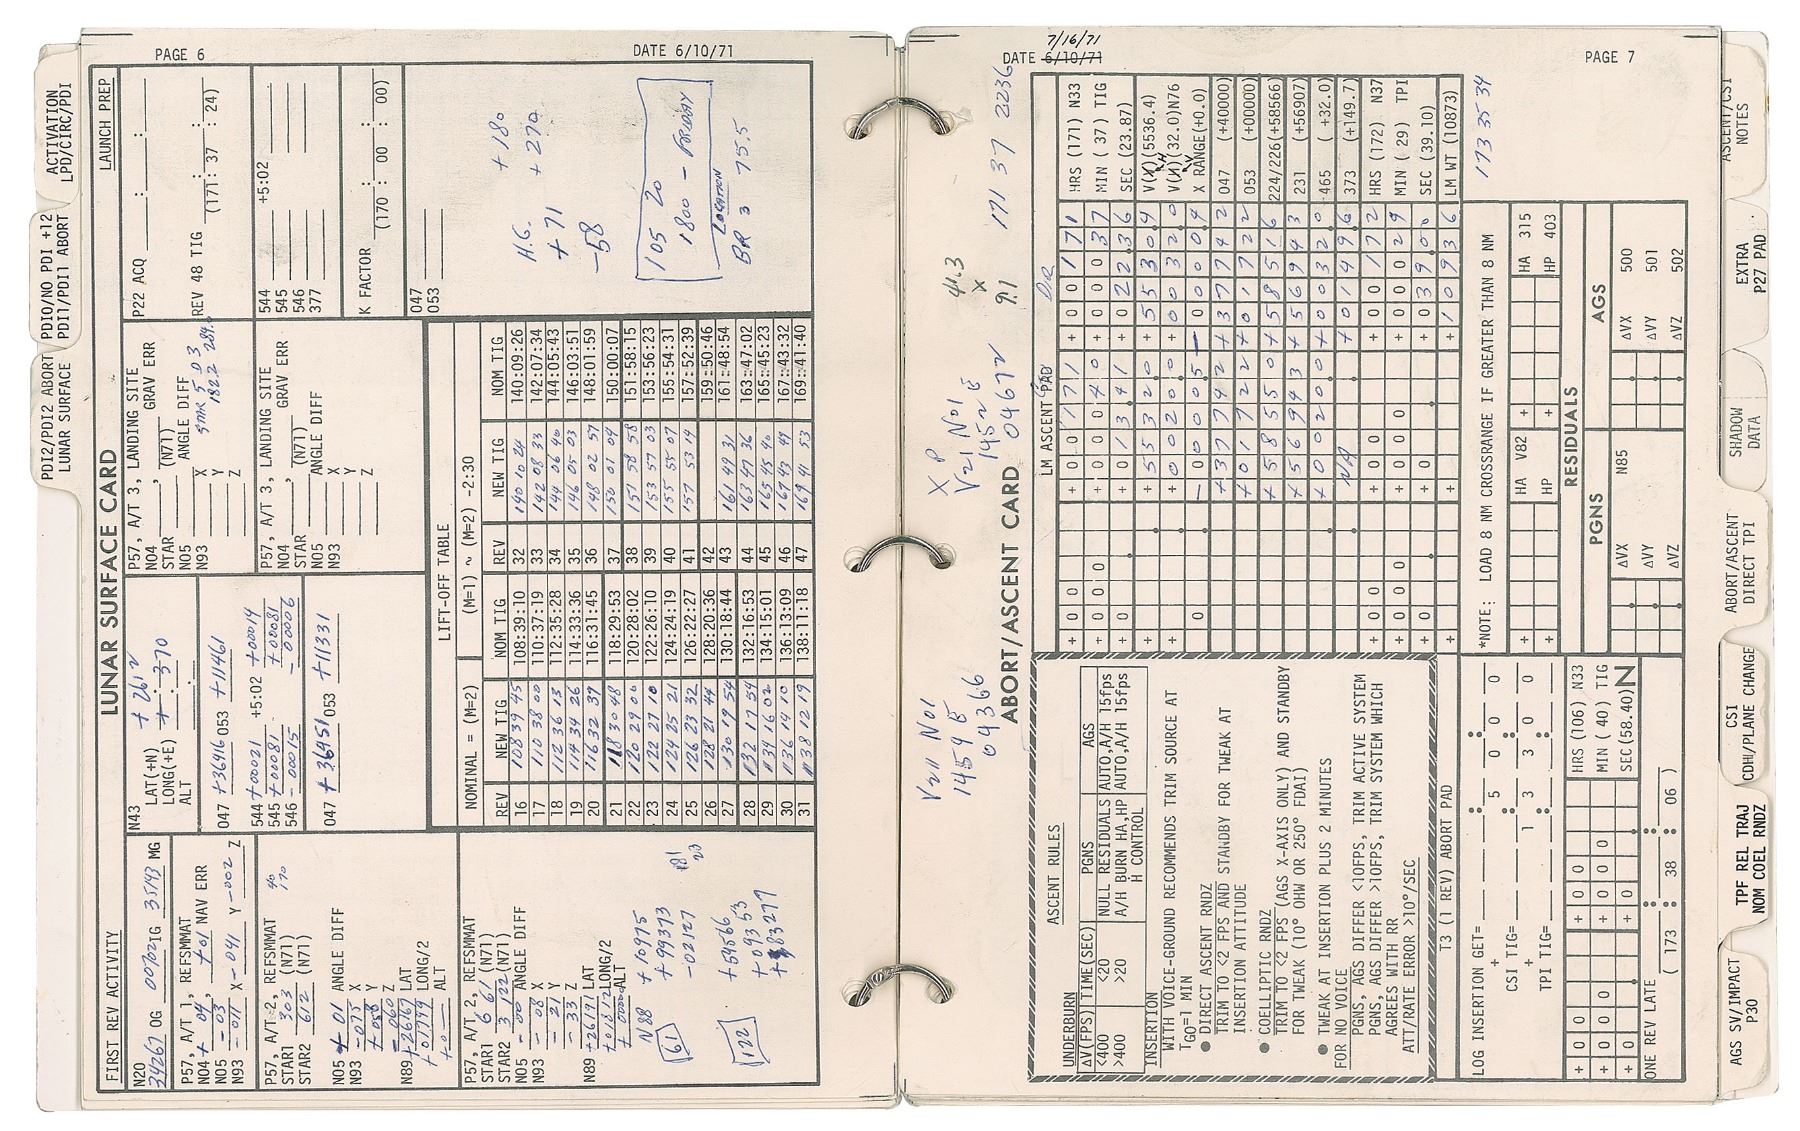 PAGE 6
DATE 6/10/71
ACTIVATION
LPD/CIRC/PDI
PDI0/NO PDI +12
PDI1/PDI1 ABORT
PDI2/PDI2 ABORT
LUNAR SURFACE
LUNAR SURFACE CARD
FIRST REV ACTIVITY
LAUNCH PREP
N20
34267 OG 00702 IG 35193 MG
P57, A/T 1, REFSMMAT
N04 + 04, +01 NAV ERR
N05 -03
N93 -011 X -041 Y -002 Z
P57, A/T 2, REFSMMAT
STAR1 303 (N71)
STAR2 612 (N71)
N05 + 01 ANGLE DIFF
N93 -075 X
+058 Y
-060 Z
N89 +26167 LAT
+01799 LONG/2
+0 ALT
P57, A/T 2, REFSMMAT
STAR1 661 (N71)
STAR2 3122 (N71)
N05 -00 ANGLE DIFF
N93 -08 X
-21 Y
-33 Z
N89 +26191 LAT
+01812 LONG/2
ALT
N88 +10975
61 +99373
-02127
122
+54566
+09353
+83277
N43
LAT(+N) + 26.2
LONG(+E) + 3.70
ALT
047 +36916 053 +11461
+5:02
544 +00021 +00014
545 +00081 +00081
546 -00015 -00006
047 +36951 053 +11331
P57, A/T 3, LANDING SITE
N04 GRAV ERR
STAR (N71)
N05 ANGLE DIFF
N93 X
Y
Z
182.2
P57, A/T 3, LANDING SITE
N04 GRAV ERR
STAR (N71)
N05 ANGLE DIFF
N93 X
Y
Z
P22 ACQ : :
REV 48 TIG (171: 37 : 24)
+5:02
544
545
546
377
K FACTOR : :
(170 : 00 : 00)
047
053
LIFT-OFF TABLE
NOMINAL = (M=2) (M=1) ~ (M=2) -2:30
REV NEW TIG NOM TIG REV NEW TIG NOM TIG
16 108 39 45 108:39:10 32 140 10 24 140:09:26
17 110 38 00 110:37:19 33 142 08 33 142:07:34
18 112 36 13 112:35:28 34 144 06 40 144:05:43
19 114 34 26 114:33:36 35 146 05 03 146:03:51
20 116 32 39 116:31:45 36 148 02 57 148:01:59
21 118 30 48 118:29:53 37 150 01 04 150:00:07
22 120 29 00 120:28:02 38 151 58 58 151:58:15
23 122 27 10 122:26:10 39 153 57 03 153:56:23
24 124 25 21 124:24:19 40 155 55 07 155:54:31
25 126 23 32 126:22:27 41 157 53 14 157:52:39
26 128 21 44 128:20:36 42 159:50:46
27 130 19 54 130:18:44 43 161 49 31 161:48:54
28 132 17 54 132:16:53 44 163 47 36 163:47:02
29 134 16 02 134:15:01 45 165 45 40 165:45:23
30 136 14 10 136:13:09 46 167 43 49 167:43:32
31 138 12 19 138:11:18 47 169 41 53 169:41:40
H.G. +180
+71 +270
-58
105 20
1800 - FRIDAY
LOCATION
BR 3 75.5
7/16/71
DATE 6/10/71
PAGE 7
V21 N01
1459 E
04366
X P
V21 N01
1452 E
04672
41.3
X
9.1
171 37 2236
ABORT/ASCENT CARD
ASCENT RULES
UNDERBURN
ΔV(FPS) TIME(SEC) PGNS AGS
<400 <20 NULL RESIDUALS AUTO,A/H 15fps
>400 >20 A/H BURN HA,HP AUTO,A/H 15fps
H CONTROL
INSERTION
WITH VOICE-GROUND RECOMMENDS TRIM SOURCE AT
TGO=1 MIN
● DIRECT ASCENT RNDZ
TRIM TO <2 FPS AND STANDBY FOR TWEAK AT
INSERTION ATTITUDE
● COELLIPTIC RNDZ
TRIM TO <2 FPS (AGS X-AXIS ONLY) AND STANDBY
FOR TWEAK (10° OHW OR 250° FDAI)
● TWEAK AT INSERTION PLUS 2 MINUTES
FOR NO VOICE
PGNS, AGS DIFFER <10FPS, TRIM ACTIVE SYSTEM
PGNS, AGS DIFFER >10FPS, TRIM SYSTEM WHICH
AGREES WITH RR
ATT/RATE ERROR >10°/SEC
LM ASCENT PAD
+ 0 0 + 0 0 1 7 1 + 0 0 1 7 1 HRS (171) N33
+ 0 0 0 + 0 0 0 4 0 + 0 0 0 3 7 MIN ( 37) TIG
+ 0 + 0 1 3 4 1 + 0 2 2 3 6 SEC (23.87)
+ + 5 5 3 2 0 + 5 5 3 0 9 V(H)(5536.4)
+ + 0 0 2 0 0 + 0 0 3 2 0 V(V)(32.0)N76
0 - 0 0 0 0 5 - 0 0 0 0 4 X RANGE(+0.0)
+37742 +37742 047 (+40000)
+01722 +01722 053 (+00000)
+58550 +58516 224/226(+58566)
+56943 +56943 231 (+56907)
+00200 +00320 465 ( +32.0)
NA +01496 373 (+149.7)
+ 0 0 + 0 0 + 0 0 1 7 2 HRS (172) N37
+ 0 0 0 + 0 0 0 + 0 0 0 2 9 MIN ( 29) TPI
+ 0 + 0 + 0 3 9 0 0 SEC (39.10)
+ 1 0 9 3 6 LM WT (10873)
173 35 34
*NOTE: LOAD 8 NM CROSSRANGE IF GREATER THAN 8 NM
+ HA V82 + HA 315
+ HP + HP 403
RESIDUALS
PGNS AGS
ΔVX N85 ΔVX 500
ΔVY ΔVY 501
ΔVZ ΔVZ 502
T3 (1 REV) ABORT PAD
LOG INSERTION GET= : :
+ 5 0 : 0 0
CSI TIG= : :
+ 1 3 3 : 0 0
TPI TIG= : :
+ 0 0 + 0 0 HRS (106) N33
+ 0 0 0 + 0 0 0 MIN ( 40) TIG
+ 0 + 0 SEC(58.40) N
ONE REV LATE : :
( 173 : 38 : 06 )
ASCENT/CSI
NOTES
EXTRA
P27 PAD
SHADOW
DATA
ABORT/ASCENT
DIRECT TPI
CSI
CDH/PLANE CHANGE
TPF REL TRAJ
NOM COEL RNDZ
AGS SV/IMPACT
P30